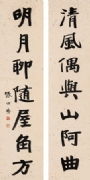 清風偶與山阿曲
明月聊隨屋角方